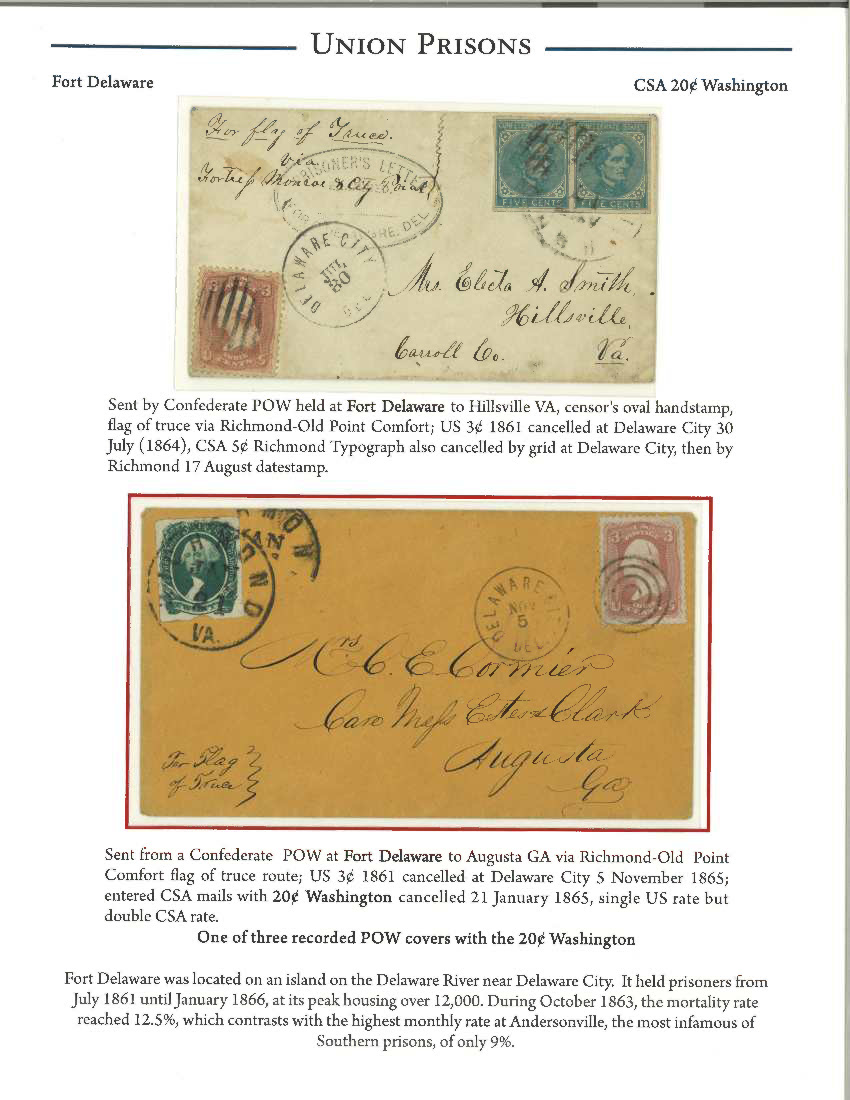 UNION PRISONS
Fort Delaware
CSA 20¢ Washington
For flag of Truce.
via
Fortress Monroe & City Point
PRISONER'S LETTE
DELAWARE. DEL.
CONFEDERATE STATES
FIVE CENTS
FIVE CENTS
DELAWARE CITY
JUL
30
DEL
3 3
Mrs. Electa A. Smith,
Hillsville,
Carroll Co. Va.
Sent by Confederate POW held at Fort Delaware to Hillsville VA, censor's oval handstamp,
flag of truce via Richmond-Old Point Comfort; US 3¢ 1861 cancelled at Delaware City 30
July (1864), CSA 5¢ Richmond Typograph also cancelled by grid at Delaware City, then by
Richmond 17 August datestamp.
MOND
VA.
3 3
DELAWARE CITY
NOV
5
DEL.
Mrs C. E. Cormier
Care Mess Estes & Clark
Augusta
Ga
For Flag
of Truce
Sent from a Confederate POW at Fort Delaware to Augusta GA via Richmond-Old Point
Comfort flag of truce route; US 3¢ 1861 cancelled at Delaware City 5 November 1865;
entered CSA mails with 20¢ Washington cancelled 21 January 1865, single US rate but
double CSA rate.
One of three recorded POW covers with the 20¢ Washington
Fort Delaware was located on an island on the Delaware River near Delaware City. It held prisoners from
July 1861 until January 1866, at its peak housing over 12,000. During October 1863, the mortality rate
reached 12.5%, which contrasts with the highest monthly rate at Andersonville, the most infamous of
Southern prisons, of only 9%.